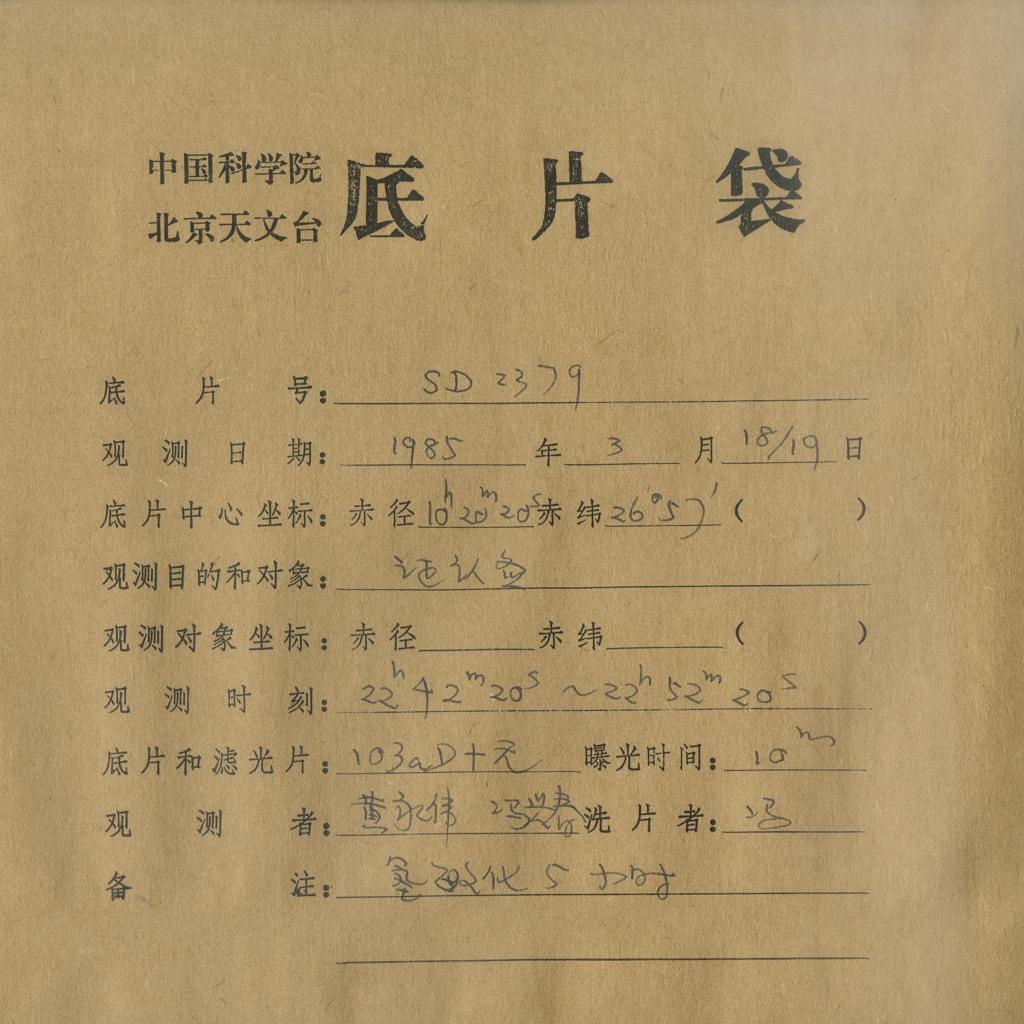 中国科学院
北京天文台
底片袋
底片号: SD 2379
观测日期: 1985 年 3 月 18/19 日
底片中心坐标: 赤径 10ʰ20ᵐ20ˢ 赤纬 26°57′ ( )
观测目的和对象: 证认
观测对象坐标: 赤径 赤纬 ( )
观测时刻: 22ʰ42ᵐ20ˢ ~ 22ʰ52ᵐ20ˢ
底片和滤光片: 103aD+无 曝光时间: 10ᵐ
观测者: 黄永伟 冯兴春 洗片者: 冯
备注: 敏化 5 小时